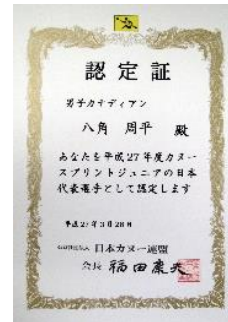 認定証
男子カナディアン
八角 周平 殿
あなたを平成27年度カヌー
スプリントジュニアの日本
代表選手として認定します
平成27年3月28日
公益社団法人 日本カヌー連盟
会長